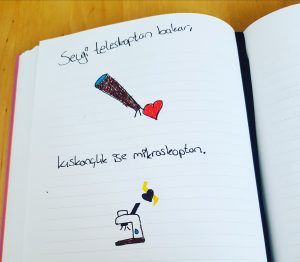 Sevgi teleskoptan bakar,
kıskançlık ise mikroskoptan.